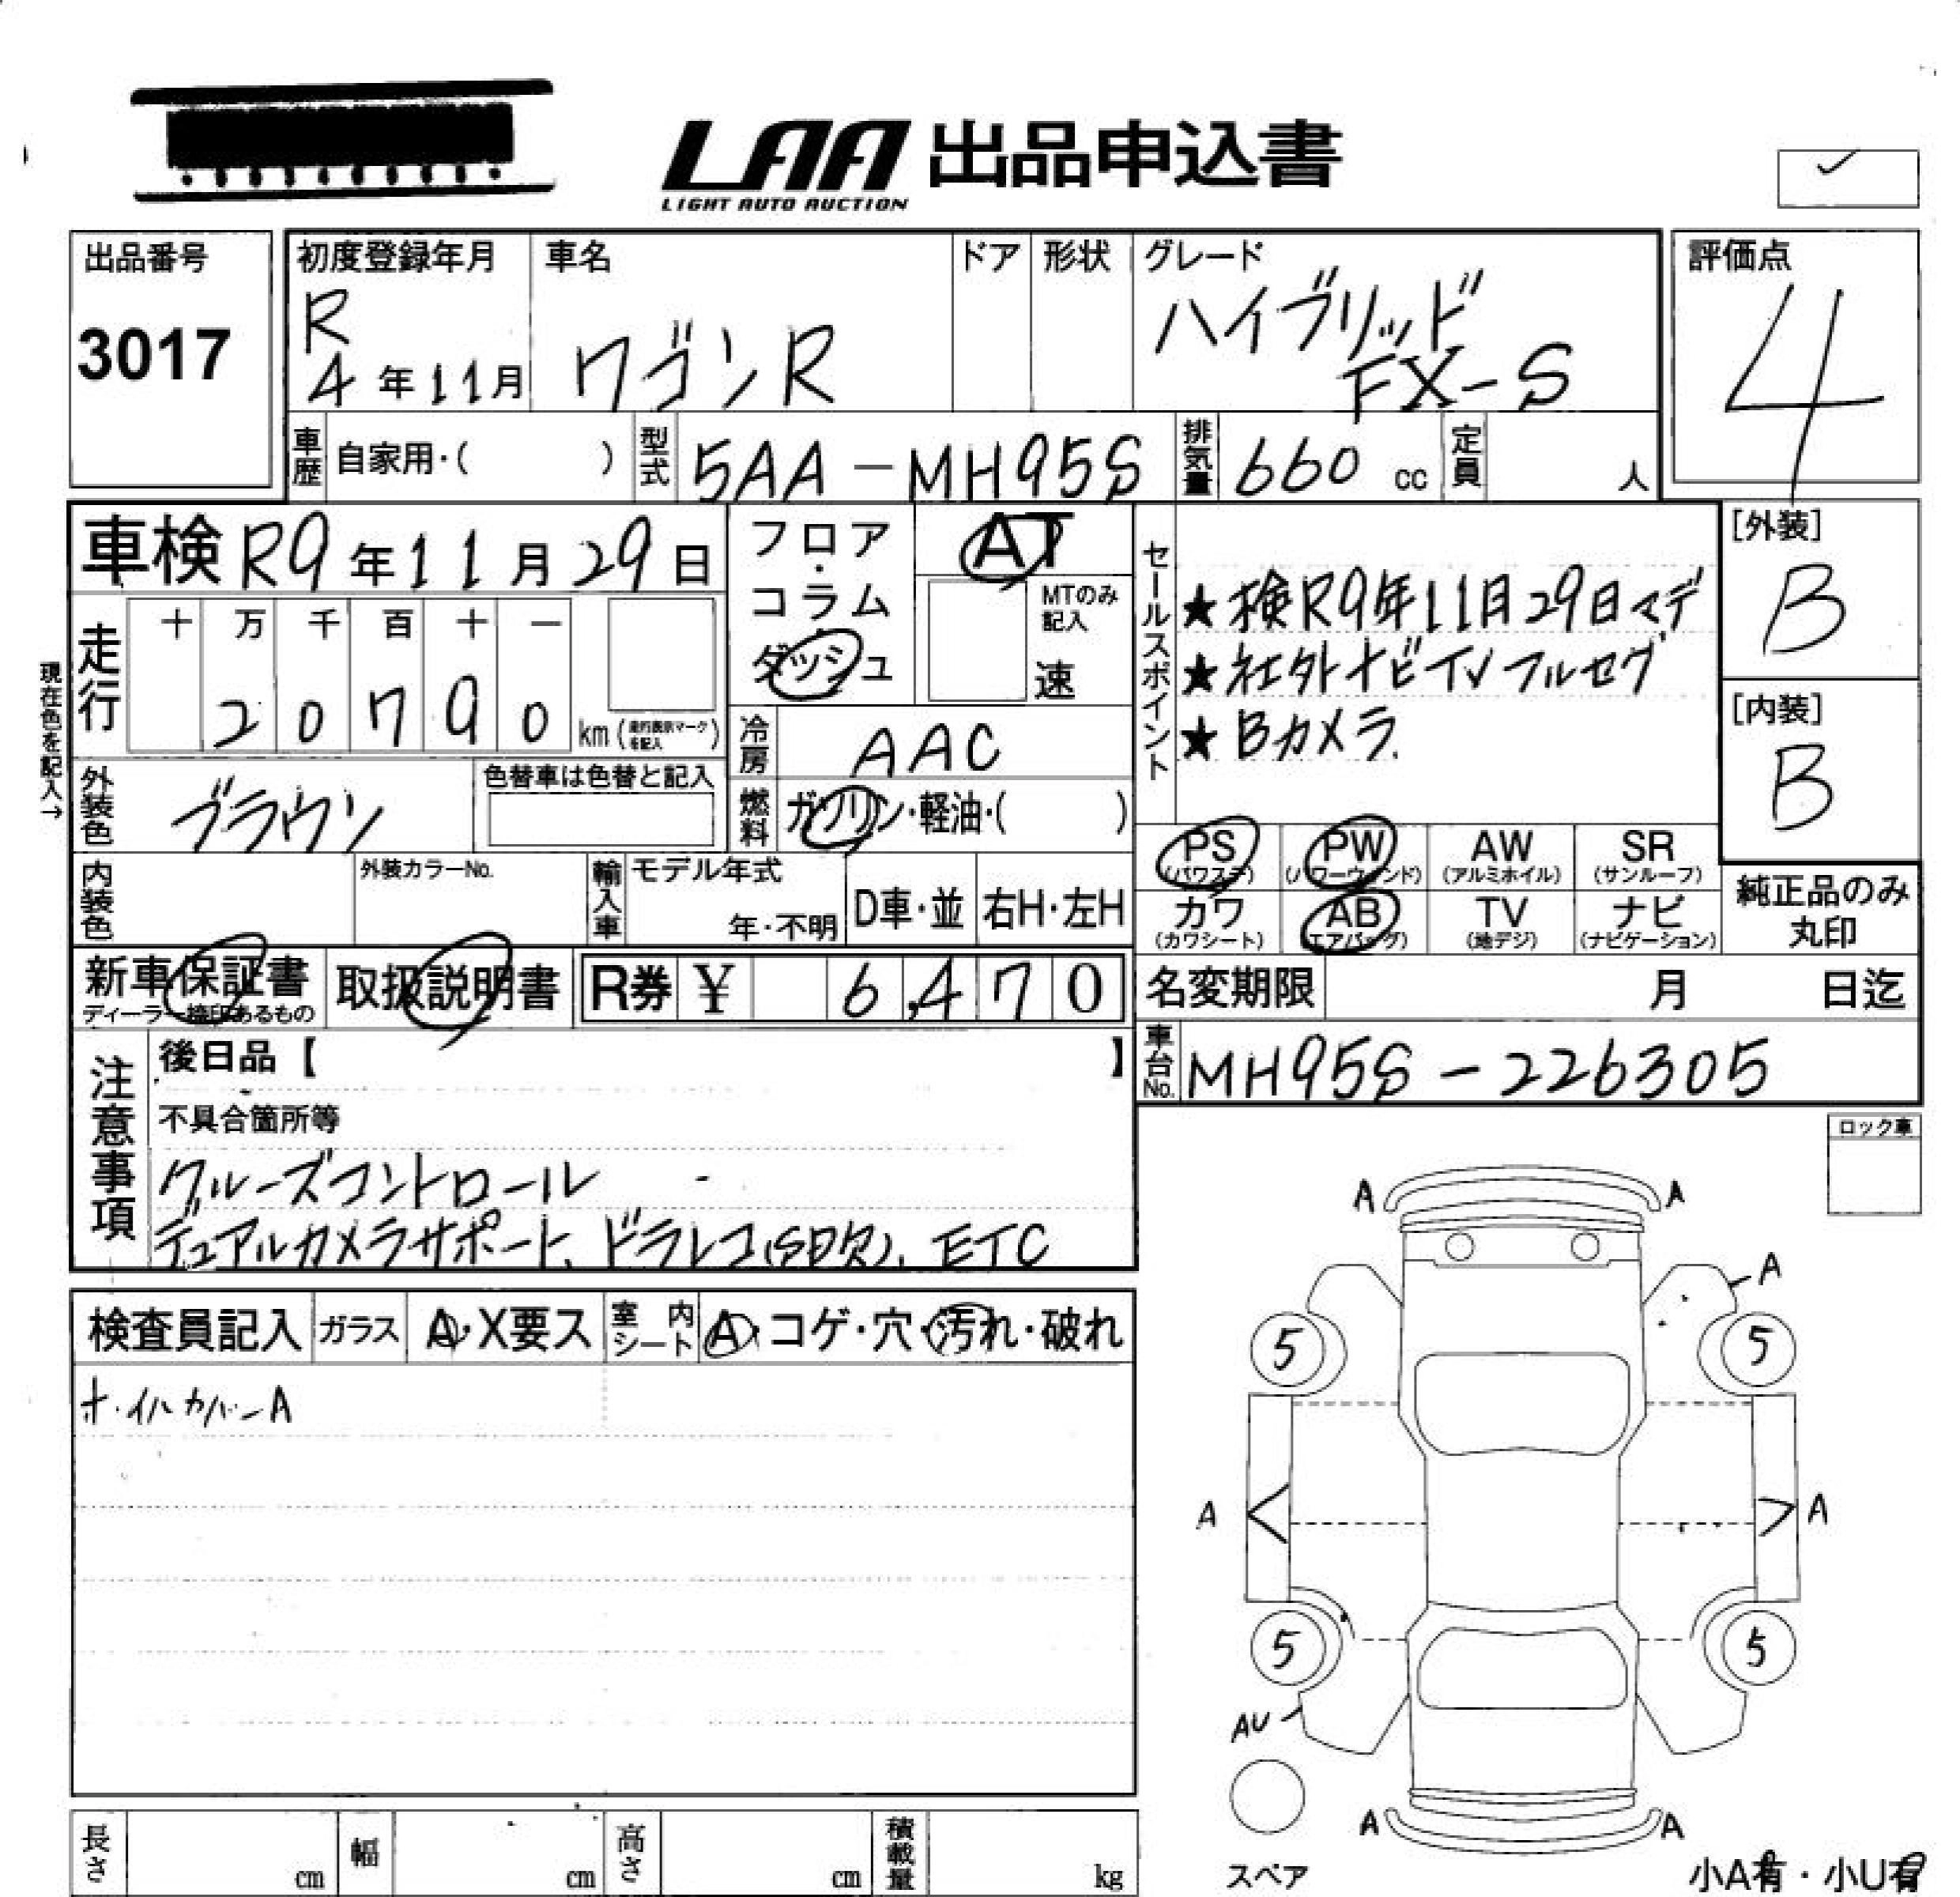 LAA 出品申込書
LIGHT AUTO AUCTION
出品番号
3017
初度登録年月
R
4年11月
車名
ワゴンR
ドア
形状
グレード
ハイブリッド
FX-S
評価点
4
車歴 自家用・( )
型式 5AA-MH95S
排気量 660 cc
定員 人
車検 R9年11月29日
フロア・コラム・ダッシュ
AT
MTのみ記入
速
現在色を記入→
走行
十 万 千 百 十 一
2 0 7 9 0 km
冷房 AAC
燃料 ガソリン・軽油・( )
外装色 ブラウン
色替車は色替と記入
セールスポイント
★検R9年11月29日マデ
★社外ナビTVフルセグ
★Bカメラ
[外装]
B
[内装]
B
PS (パワステ) PW (パワーウィンド) AW (アルミホイル) SR (サンルーフ)
カワ (カワシート) AB (エアバッグ) TV (地デジ) ナビ (ナビゲーション)
純正品のみ
丸印
内装色
外装カラーNo.
輸入車
モデル年式
年・不明
D車・並
右H・左H
新車保証書
ディーラー捺印あるもの
取扱説明書
R券 ¥ 6,470
名変期限 月 日迄
車台No. MH95S-226305
注意事項
後日品【 】
不具合箇所等
クルーズコントロール
デュアルカメラサポート、ドラレコ(SD欠)、ETC
ロック車
検査員記入 ガラス A・X要ス 室内シート A・コゲ・穴・汚れ・破れ
ホイルカバーA
A A
A
5 5
A A
5 5
AU
スペア
A A
小A有・小U有
長さ cm 幅 cm 高さ cm 積載量 kg